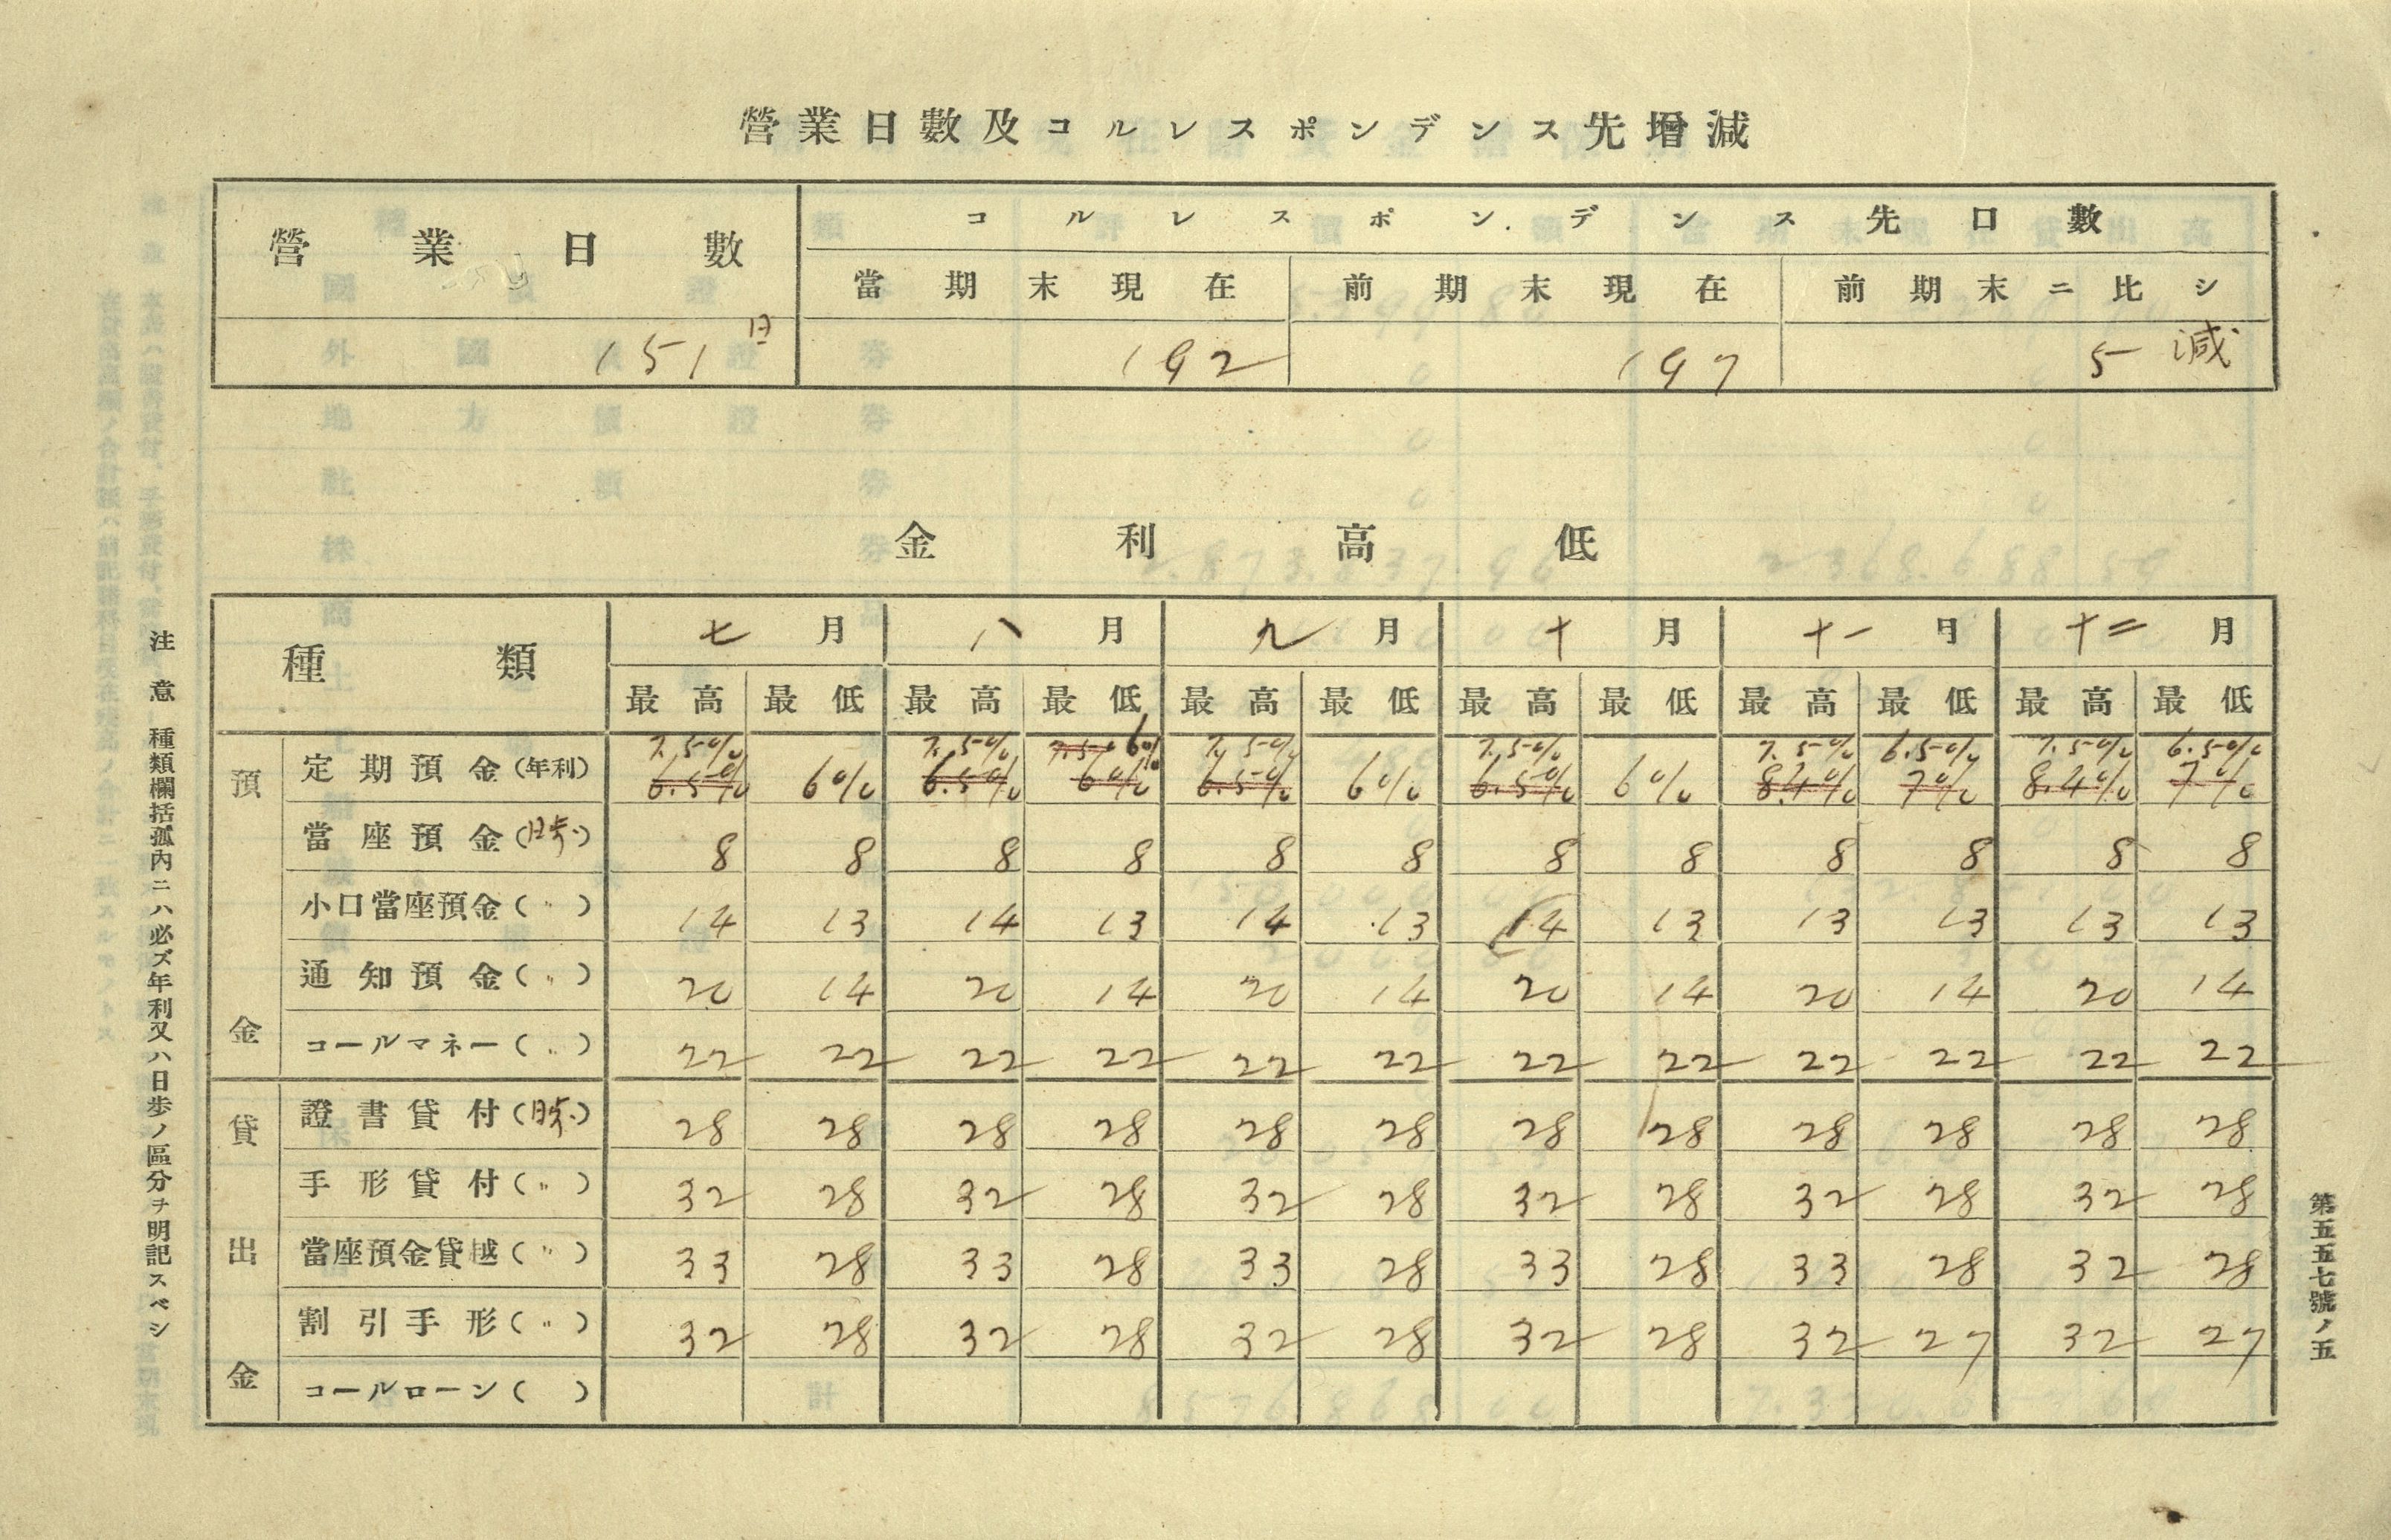 營業日數及コルレスポンデンス先增減
營業日數 コルレスポンデンス先口數
當期末現在 前期末現在 前期末ニ比シ
151日 192 197 5減
金利高低
種類 七月 八月 九月 十月 十一月 十二月
最高 最低 最高 最低 最高 最低 最高 最低 最高 最低 最高 最低
7.5% 7.5% 7.5% 6% 7.5% 7.5% 7.5% 6.5% 7.5% 6.5%
預金 定期預金(年利) 6.5% 6% 6.5% 6% 6.5% 6% 6.5% 6% 8.4% 7% 8.4% 7%
當座預金(日歩) 8 8 8 8 8 8 8 8 8 8 8 8
小口當座預金(〃) 14 13 14 13 14 13 14 13 13 13 13 13
通知預金(〃) 20 14 20 14 20 14 20 14 20 14 20 14
コールマネー(〃) 22 22 22 22 22 22 22 22 22 22 22 22
貸出金 證書貸付(日歩) 28 28 28 28 28 28 28 28 28 28 28 28
手形貸付(〃) 32 28 32 28 32 28 32 28 32 28 32 28
當座預金貸越(〃) 33 28 33 28 33 28 33 28 33 28 32 28
割引手形(〃) 32 28 32 28 32 28 32 28 32 27 32 27
コールローン( )
注意 種類欄括孤內ニハ必ズ年利又ハ日歩ノ區分ヲ明記スベシ
第五五七號ノ五